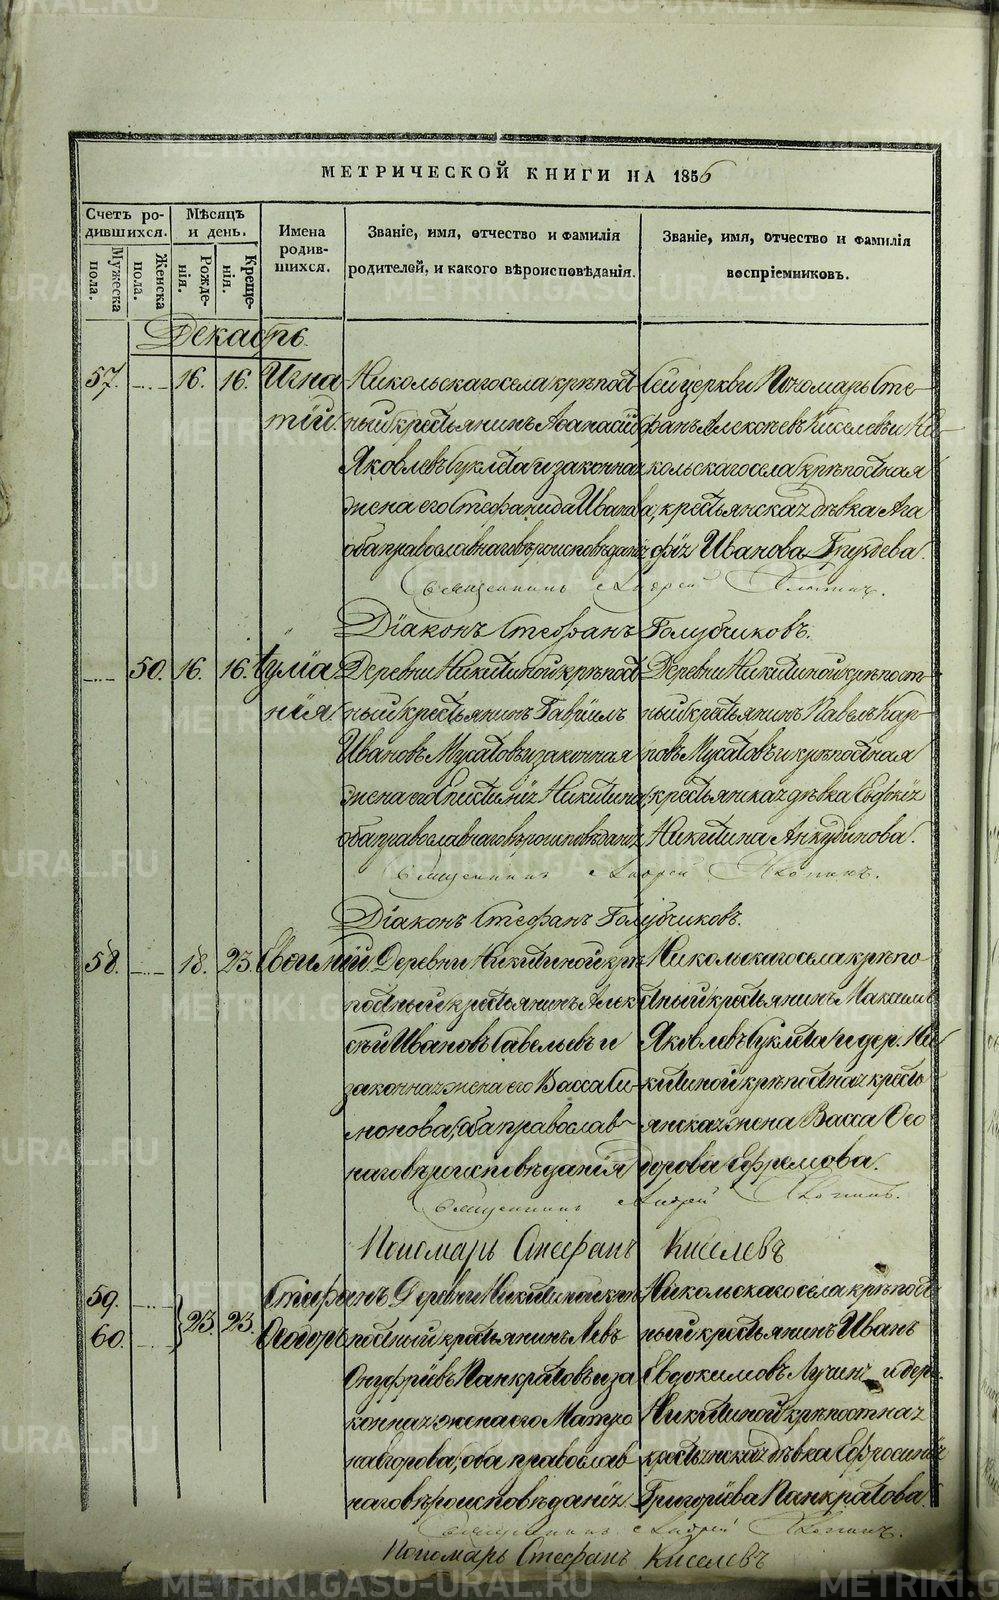 МЕТРИЧЕСКОЙ КНИГИ НА 1856
Счетъ ро-
дившихся.
Мужеска
пола.
Женска
пола.
Мѣсяцъ
и день.
Рожде-
нія.
Креще-
нія.
Имена
родив-
шихся.
Званіе, имя, отчество и фамилія
родителей, и какого вѣроисповѣданія.
Званіе, имя, отчество и фамилія
воспріемниковъ.
Декабрь.
57. 16. 16. Игна
тій
Никольскаго села крѣпост
ный крестьянинъ Аѳанасій
Яковлевъ Буклета и законная
жена его Стефанида Иванова,
оба православнаго вѣроисповѣданія
Сей церкви Пономарь Сте-
фанъ Алексѣевъ Киселевъ и Ни-
кольскаго села крѣпостная
крестьянская дѣвка Ага
фія Иванова Груздева.
Священникъ Андрей
Діаконъ Стефанъ Голубчиковъ.
50. 16. 16. Іуліа
нія
Деревни Никитиной крѣпост
ный крестьянинъ Гавріилъ
Ивановъ Мусатовъ и законная
жена его Епистимія Никитина,
оба православнаго вѣроисповѣданія
Деревни Никитиной крѣпост-
ный крестьянинъ Павелъ Кар-
повъ Мусатовъ и крѣпостная
крестьянская дѣвка Евдокія
Никитина Анкудинова.
Священникъ Андрей
Діаконъ Стефанъ Голубчиковъ.
58. 18. 23. Евѳимій
Деревни Никитиной крѣ
постный крестьянинъ Алек
сѣй Ивановъ Савельевъ и
законная жена его Васса Си-
монова, оба православ-
наго вѣроисповѣданія
Никольскаго села крѣпо-
стный крестьянинъ Максимъ
Яковлевъ Буклета и дер. Ни
китиной крѣпостная кресть
янская жена Васса Ѳео
дорова Ефремова.
Священникъ Андрей
Пономарь Стефанъ Киселевъ
59.
60. 23. 23. Стефанъ
Ѳеодоръ
Деревни Никитиной крѣ
постный крестьянинъ Левъ
Онуфріевъ Панкратовъ и за
конная жена его Матро
на Егорова, оба православ
наго вѣроисповѣданія
Никольскаго села крѣпост
ный крестьянинъ Иванъ
Евдокимовъ Лучин и дер.
Никитиной крѣпостная
крестьянская дѣвка Ефросинія
Григоріева Панкратова.
Священникъ Андрей
Пономарь Стефанъ Киселевъ
METRIKI.GASO-URAL.RU